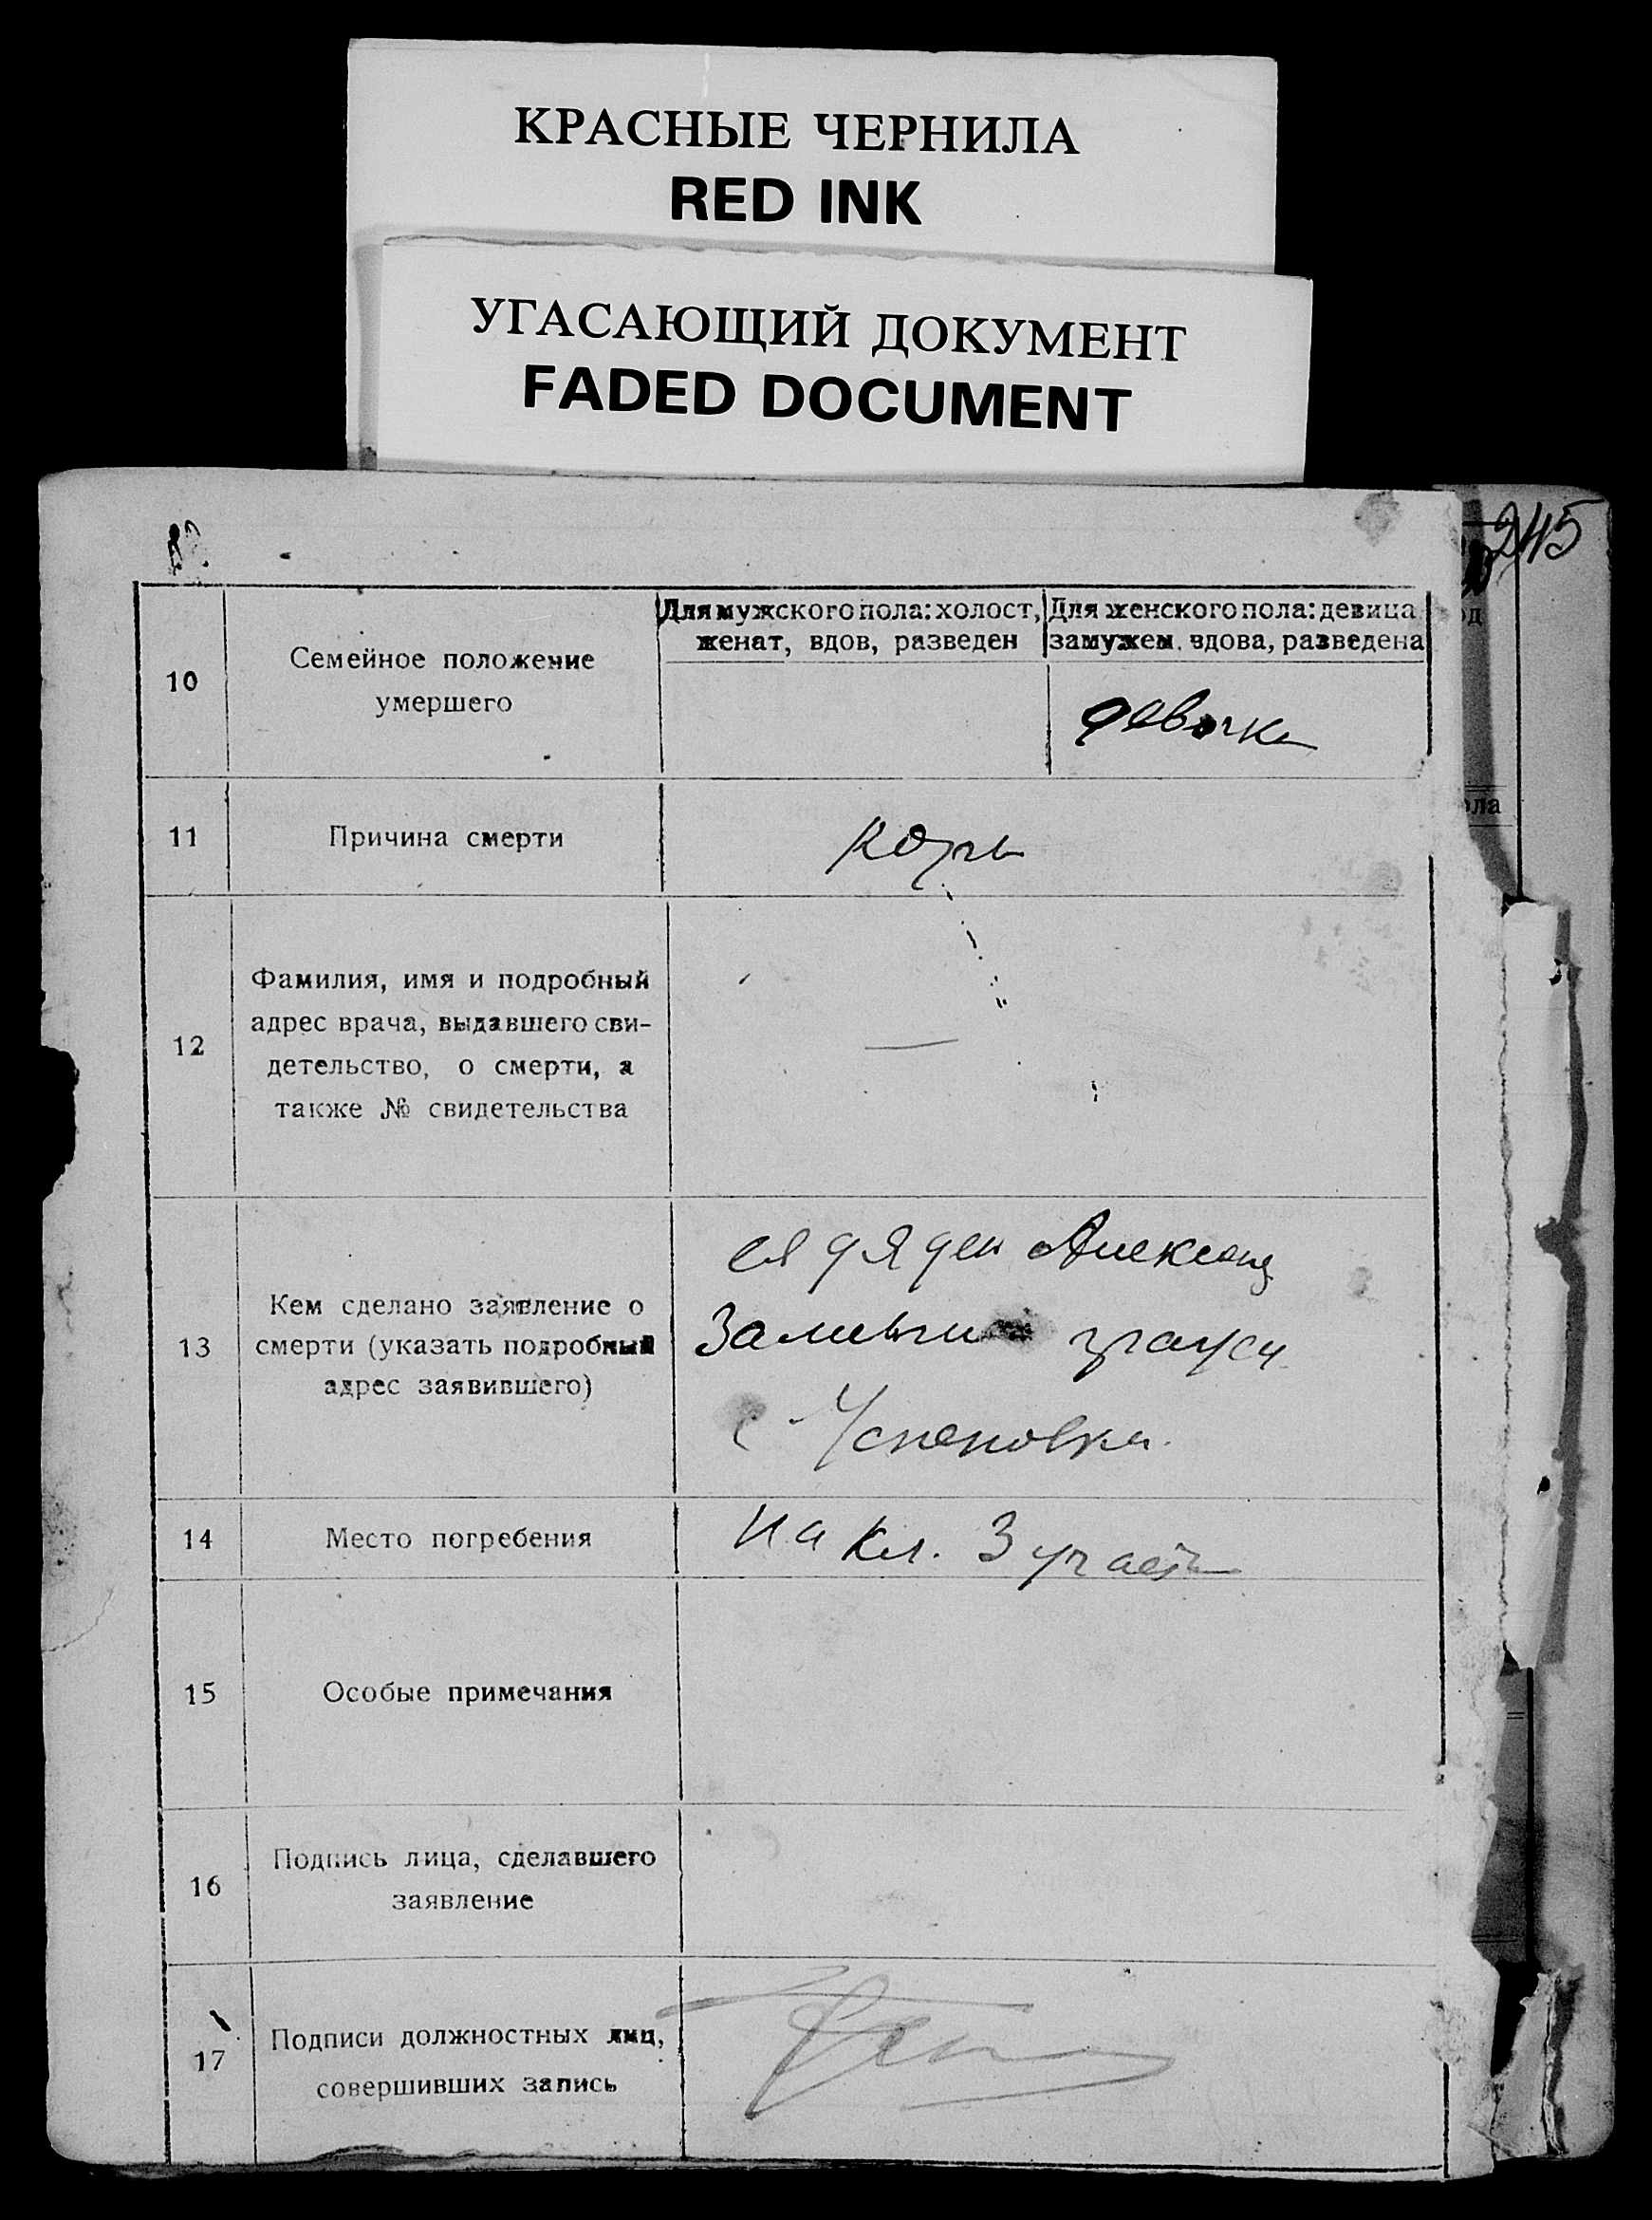 КРАСНЫЕ ЧЕРНИЛА
RED INK
УГАСАЮЩИЙ ДОКУМЕНТ
FADED DOCUMENT
245
10
Семейное положение
умершего
Для мужского пола: холост,
женат, вдов, разведен
Для женского пола: девица
замужем, вдова, разведена
девочка
11
Причина смерти
корь
12
Фамилия, имя и подробный
адрес врача, выдавшего сви-
детельство, о смерти, а
также № свидетельства
—
13
Кем сделано заявление о
смерти (указать подробный
адрес заявившего)
ея дядей
с Успеновка
14
Место погребения
На кл. 3 участ
15
Особые примечания
16
Подпись лица, сделавшего
заявление
17
Подписи должностных лиц,
совершивших запись
ола